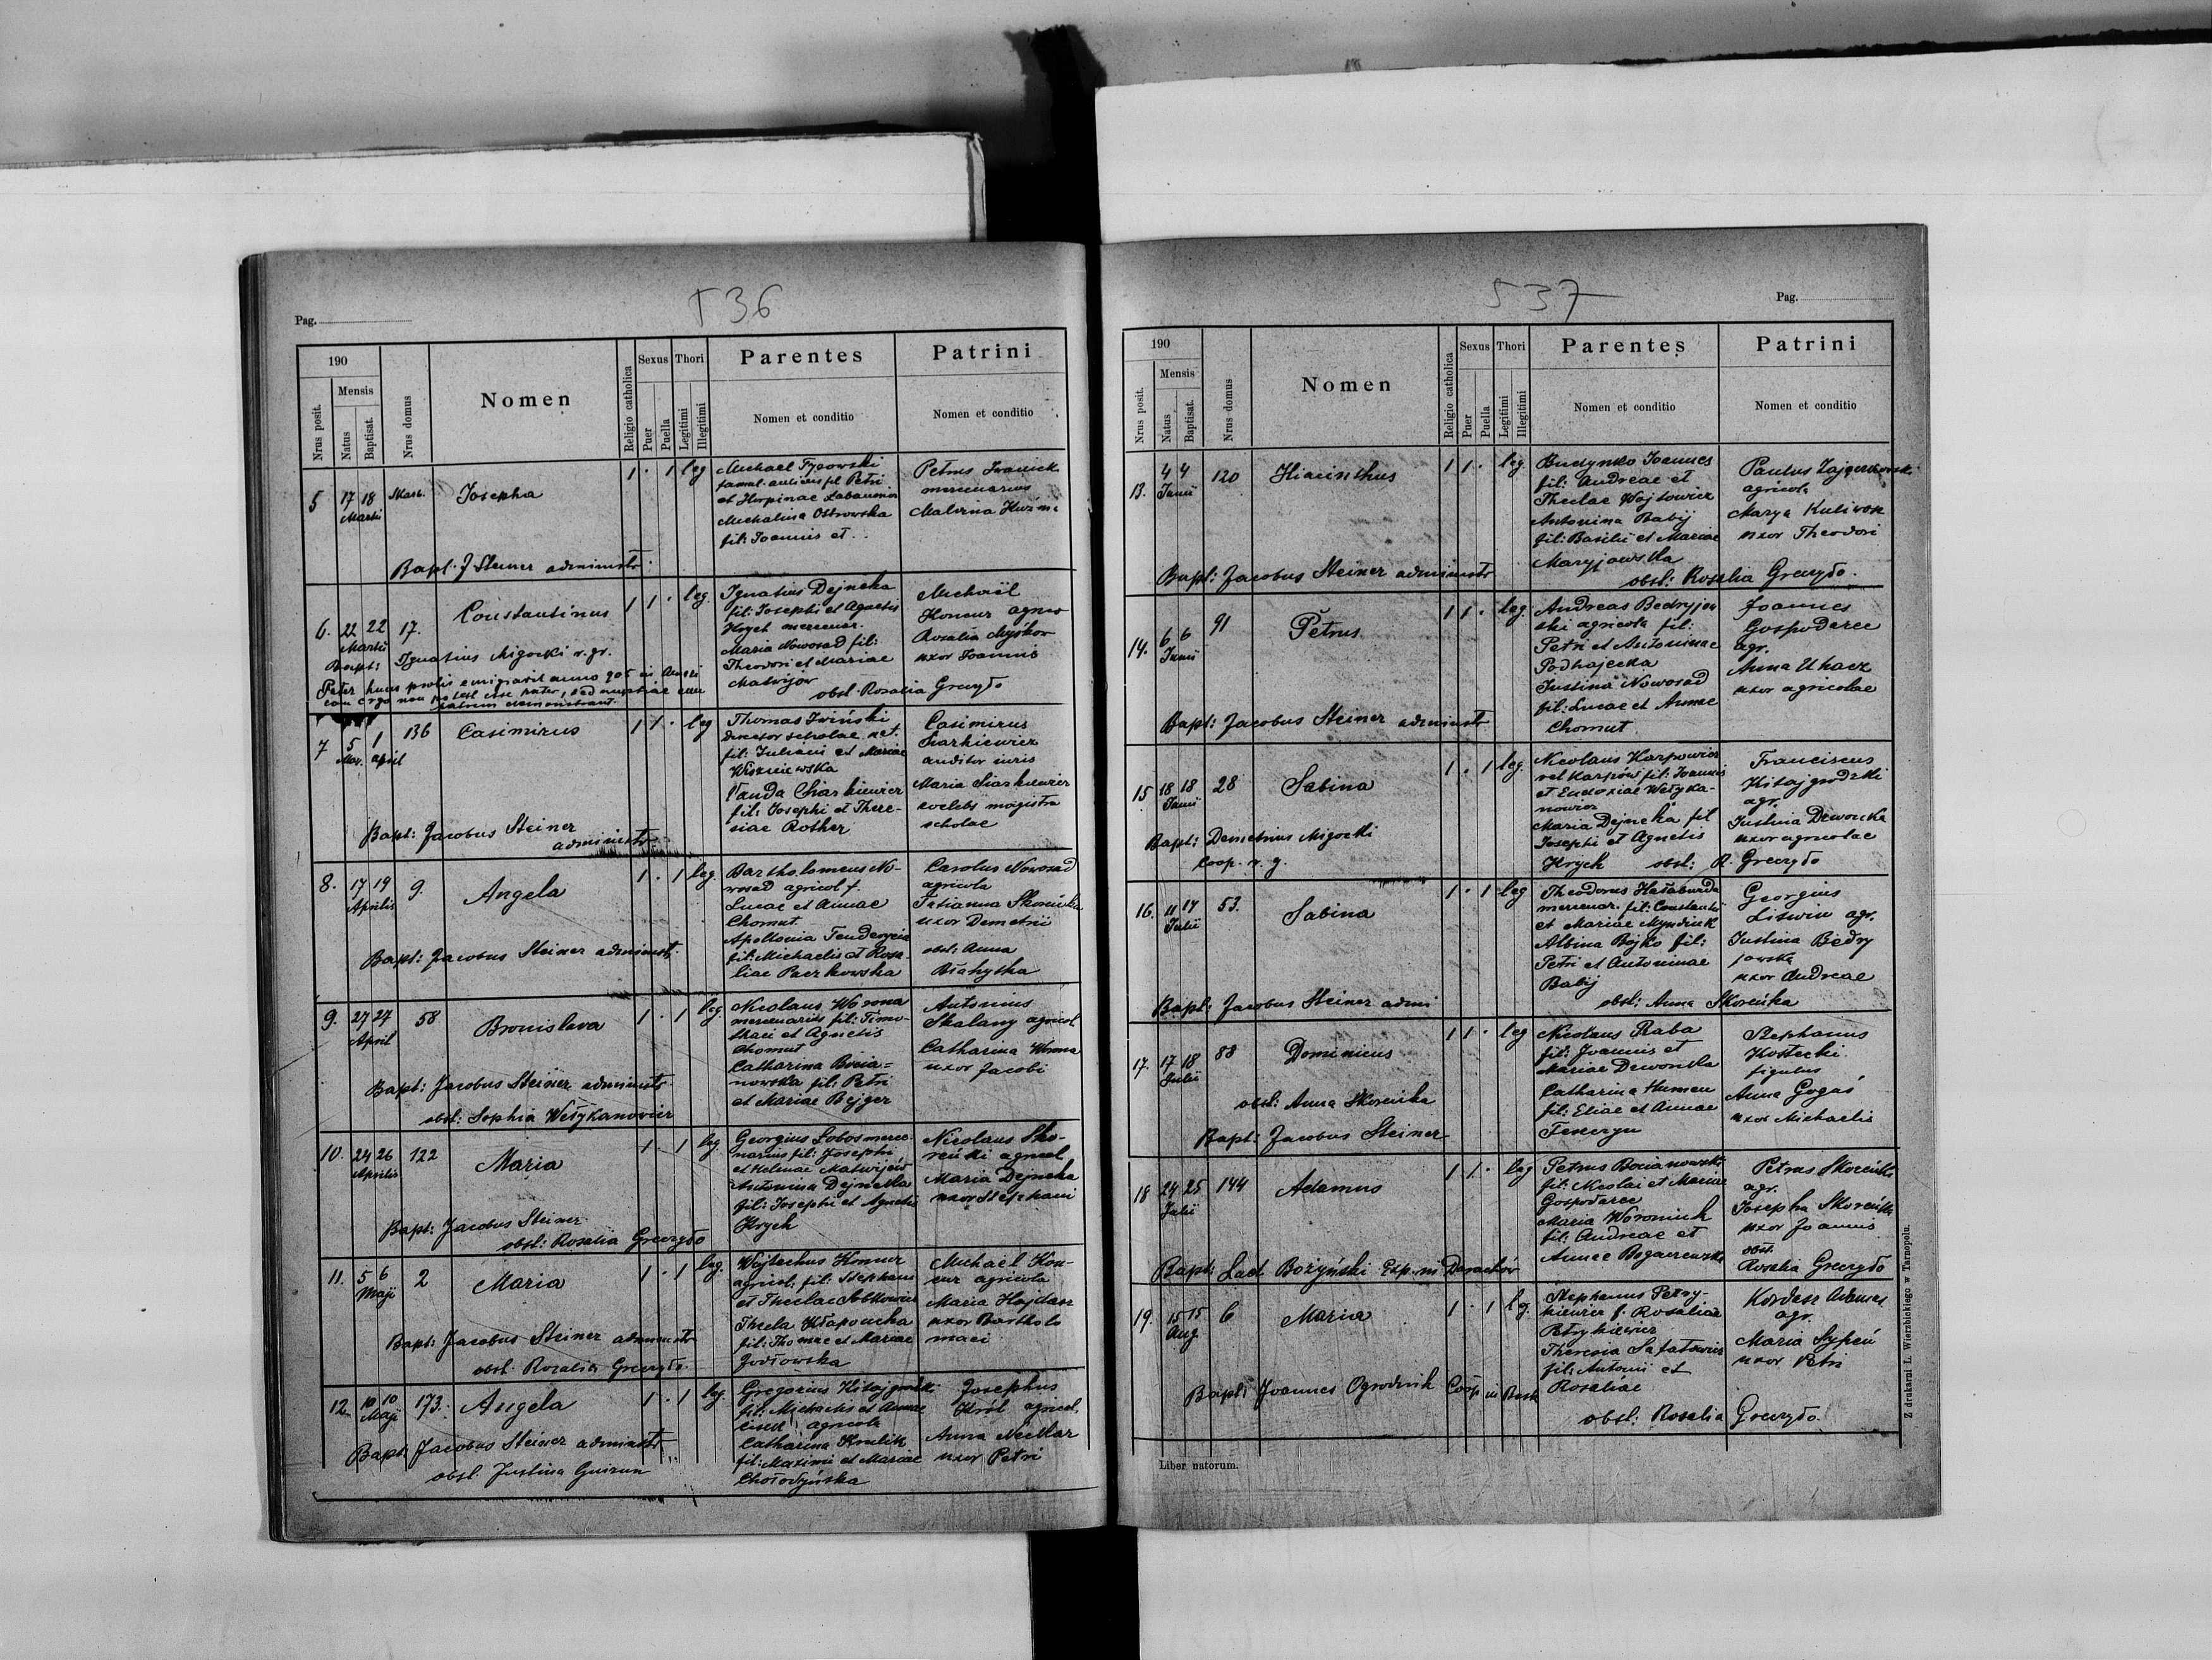 536
Pag.
190
Nrus posit.
Mensis
Natus
Baptisat.
Nrus domus
Nomen
Religio catholica
Sexus
Puer
Puella
Thori
Legitimi
Illegitimi
Parentes
Nomen et conditio
Patrini
Nomen et conditio
5 17 18 Josepha 1 · 1 leg
Martii
Michael
et
Michalina Ostrowska
fil: Joannis et ..
Petrus
mercenarius
Malvina
Bapt. J Steiner administr.
6. 22 22 17. Constantinus 1 1 · leg.
Martii
Bapt: Ignatius Migocki r. gr.
Pater huius prolis emigravit anno 905 in Ameri
cam ergo non potest esse pater, sed nuptiae eum
patrem demonstrant.
Ignatius Dejneka
fil: Josephi et Agnetis
Krych mercenar.
Maria Nowosad fil:
Theodori et Mariae
Matwijow
Michaël
Koncur agric
Rosalia Myśkow
uxor Joannis
obst. Rosalia Greczyło
7 5 1 136 Casimirus 1 1 · leg
Mar. April
Thomas Iwiński
director scholae nat.
fil: Juliani et Mariae
Wiszniewska
Wanda Siarkiewicz
fil: Josephi et There-
siae Rother
Casimirus
Siarkiewicz
auditor iuris
Maria Siarkiewicz
coelebs magistra
scholae
Bapt: Jacobus Steiner
administr.
8. 17 19 9. Angela 1 · 1 leg.
Aprilis
Bartholomeus No-
wosad agricol f.
Lucae et Annae
Chomut.
Apollonia
fil: Michaelis et Rosa-
liae Paczkowska
Carolus Nowosad
agricola
Tatianna Skoreńka
uxor Demetrii
obst: Anna
Błahytka
Bapt: Jacobus Steiner administr.
9. 27 27 58 Bronislava 1 · 1 leg.
April
Nicolaus Worona
mercenarius fil: Timo-
thaei et Agnetis
Chomut
Catharina Bocia=
nowska fil: Petri
et Mariae Bejger
Antonius
Skalany agricol
Catharina Worona
uxor Jacobi
Bapt: Jacobus Steiner administr.
obst: Sophia Wełykanowicz
10. 24 26 122 Maria 1 · 1 leg.
Aprilis
Georgius Lobos merce-
narius fil: Josephi
et Helenae Matwijców
Antonina Dejneka
fil: Josephi et Agnetis
Krych
Nicolaus Sko-
reńki agricol
Maria Dejneka
uxor Stephani
Bapt: Jacobus Steiner
obst: Rosalia Greczyło
11. 5 6 2 Maria 1 · 1 leg.
Maji
Wojtechus Koncur
agricol. fil: Stephani
et Theclae Sobkowicz
Thecla Kłapoucha
fil: Thomae et Mariae
Jodłowska
Michaël Kon-
cur agricola
Maria Hajdasz
uxor Bartholo
maei
Bapt: Jacobus Steiner administr
obst. Rosalia Greczyło.
12. 10 10 173. Angela 1 · 1 leg.
Maji
Gregorius
fil: Michaelis et Annae
agricola
Catharina Krulik
fil: Maximi et Mariae
Chołodyńska
Josephus
Król agricol.
Anna Neczkar
uxor Petri
Bapt: Jacobus Steiner administr.
obst. Justina
537
Pag.
190
Nrus posit.
Mensis
Natus
Baptisat.
Nrus domus
Nomen
Religio catholica
Sexus
Puer
Puella
Thori
Legitimi
Illegitimi
Parentes
Nomen et conditio
Patrini
Nomen et conditio
13. 4 4 120 Hiacinthus 1 1 · leg.
Junii
Budynko Joannes
fil: Andreae et
Theclae Wojtowicz
Antonina Babij
fil: Basilii et Mariae
Maryjowska
Paulus
agricola
Marya
uxor Theodori
Bapt: Jacobus Steiner administr
obst: Rosalia Greczyło.
14. 6 6 91 Petrus 1 1 · leg.
Junii
Andreas Bedryjow
ski agricola fil:
Petri et Antoninae
Podhajecka
Justina Nowosad
fil: Lucae et Annae
Chomut.
Joannes
Gospodarec
agr.
Anna Uhacz
uxor agricolae
Bapt: Jacobus Steiner administr
15 18 18 28 Sabina 1 · 1 leg.
Junii
Nicolaus Karpowicz
vel Karpów fil: Joannis
et Eudoxiae Wełyka-
nowicz
Maria Dejneka fil
Josephi et Agnetis
Krych
Franciscus
Kitajgrodzki
agr.
Justina Dzwonka
uxor agricolae
Bapt: Demetrius Migocki
Coop. r. g.
obst: R. Greczyło
16. 11 14 53. Sabina 1 · 1 leg
Julii
Theodorus Hałaburda
mercenar. fil: Constantii
et Mariae
Albina Bojko fil:
Petri et Antoninae
Babij
Georgius
Litwin agr.
Justina Biedry
jowska
uxor Andreae
Bapt: Jacobus Steiner admi
obst: Anna Skoreńka
17. 17 18 88 Dominicus 1 1 · leg
Julii
Nicolaus Raba
fil: Joannis et
Mariae Dzwonka
Catharina Humen
fil: Eliae et Annae
Stephanus
Kostecki
figulus
Anna Gogaś
uxor Michaelis
obst: Anna Skoreńka
Bapt: Jacobus Steiner
18 24 25 144 Adamus 1 1 · leg
Julii
Petrus Bocianowski
fil: Nicolai et Mariae
Gospodarec
Maria Woroniuk
fil: Andreae et
Annae
Petrus Skoreńki
agr.
Josepha Skoreńka
uxor Joannis
obst.
Rosalia Greczyło
Bapt: Lad Bożyński Exp. in Darachów
19. 15 15 6 Maria 1 · 1 lg.
Aug
Stephanus Petry-
kiewicz f. Rosaliae
Petrykiewicz
Theresia Safatowicz
fil: Antonii et
Rosaliae
Kordasz Adamus
agr.
Maria Sypeń
uxor Petri
Bapt: Joannes Ogrodnik Coop in
obst: Rosalia Greczyło.
Liber natorum.
Z drukarni L. Wierzbickiego w Tarnopolu.